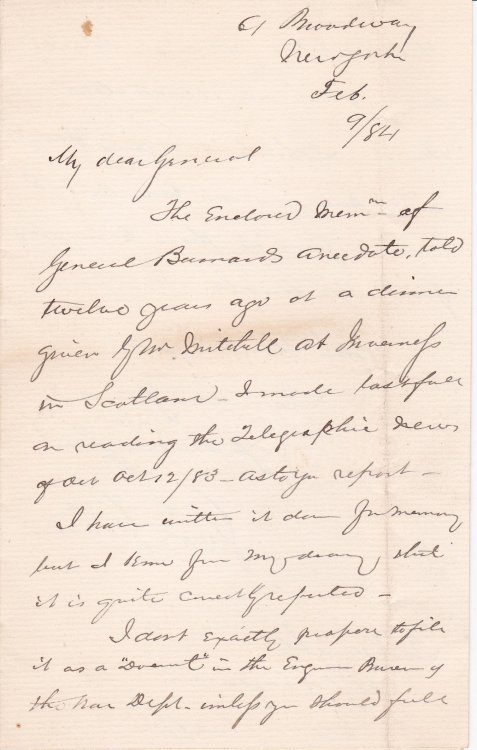 61 Broadway
New York
Feb.
9/84
My dear General
The Enclosed Memm of
General Barnards Anecdote, told
twelve years ago at a dinner
given by Mr. Mitchell at Inverness
in Scotland – I made last fall
on reading the Telegraphic News
of Oct 12/83 – as to yr report –
I have written it down from memory
but I know from my diary that
it is quite correctly reported –
I don't exactly propose to file
it as a "Document" in the Engineer Bureau of
the War Dept. unless you should feel